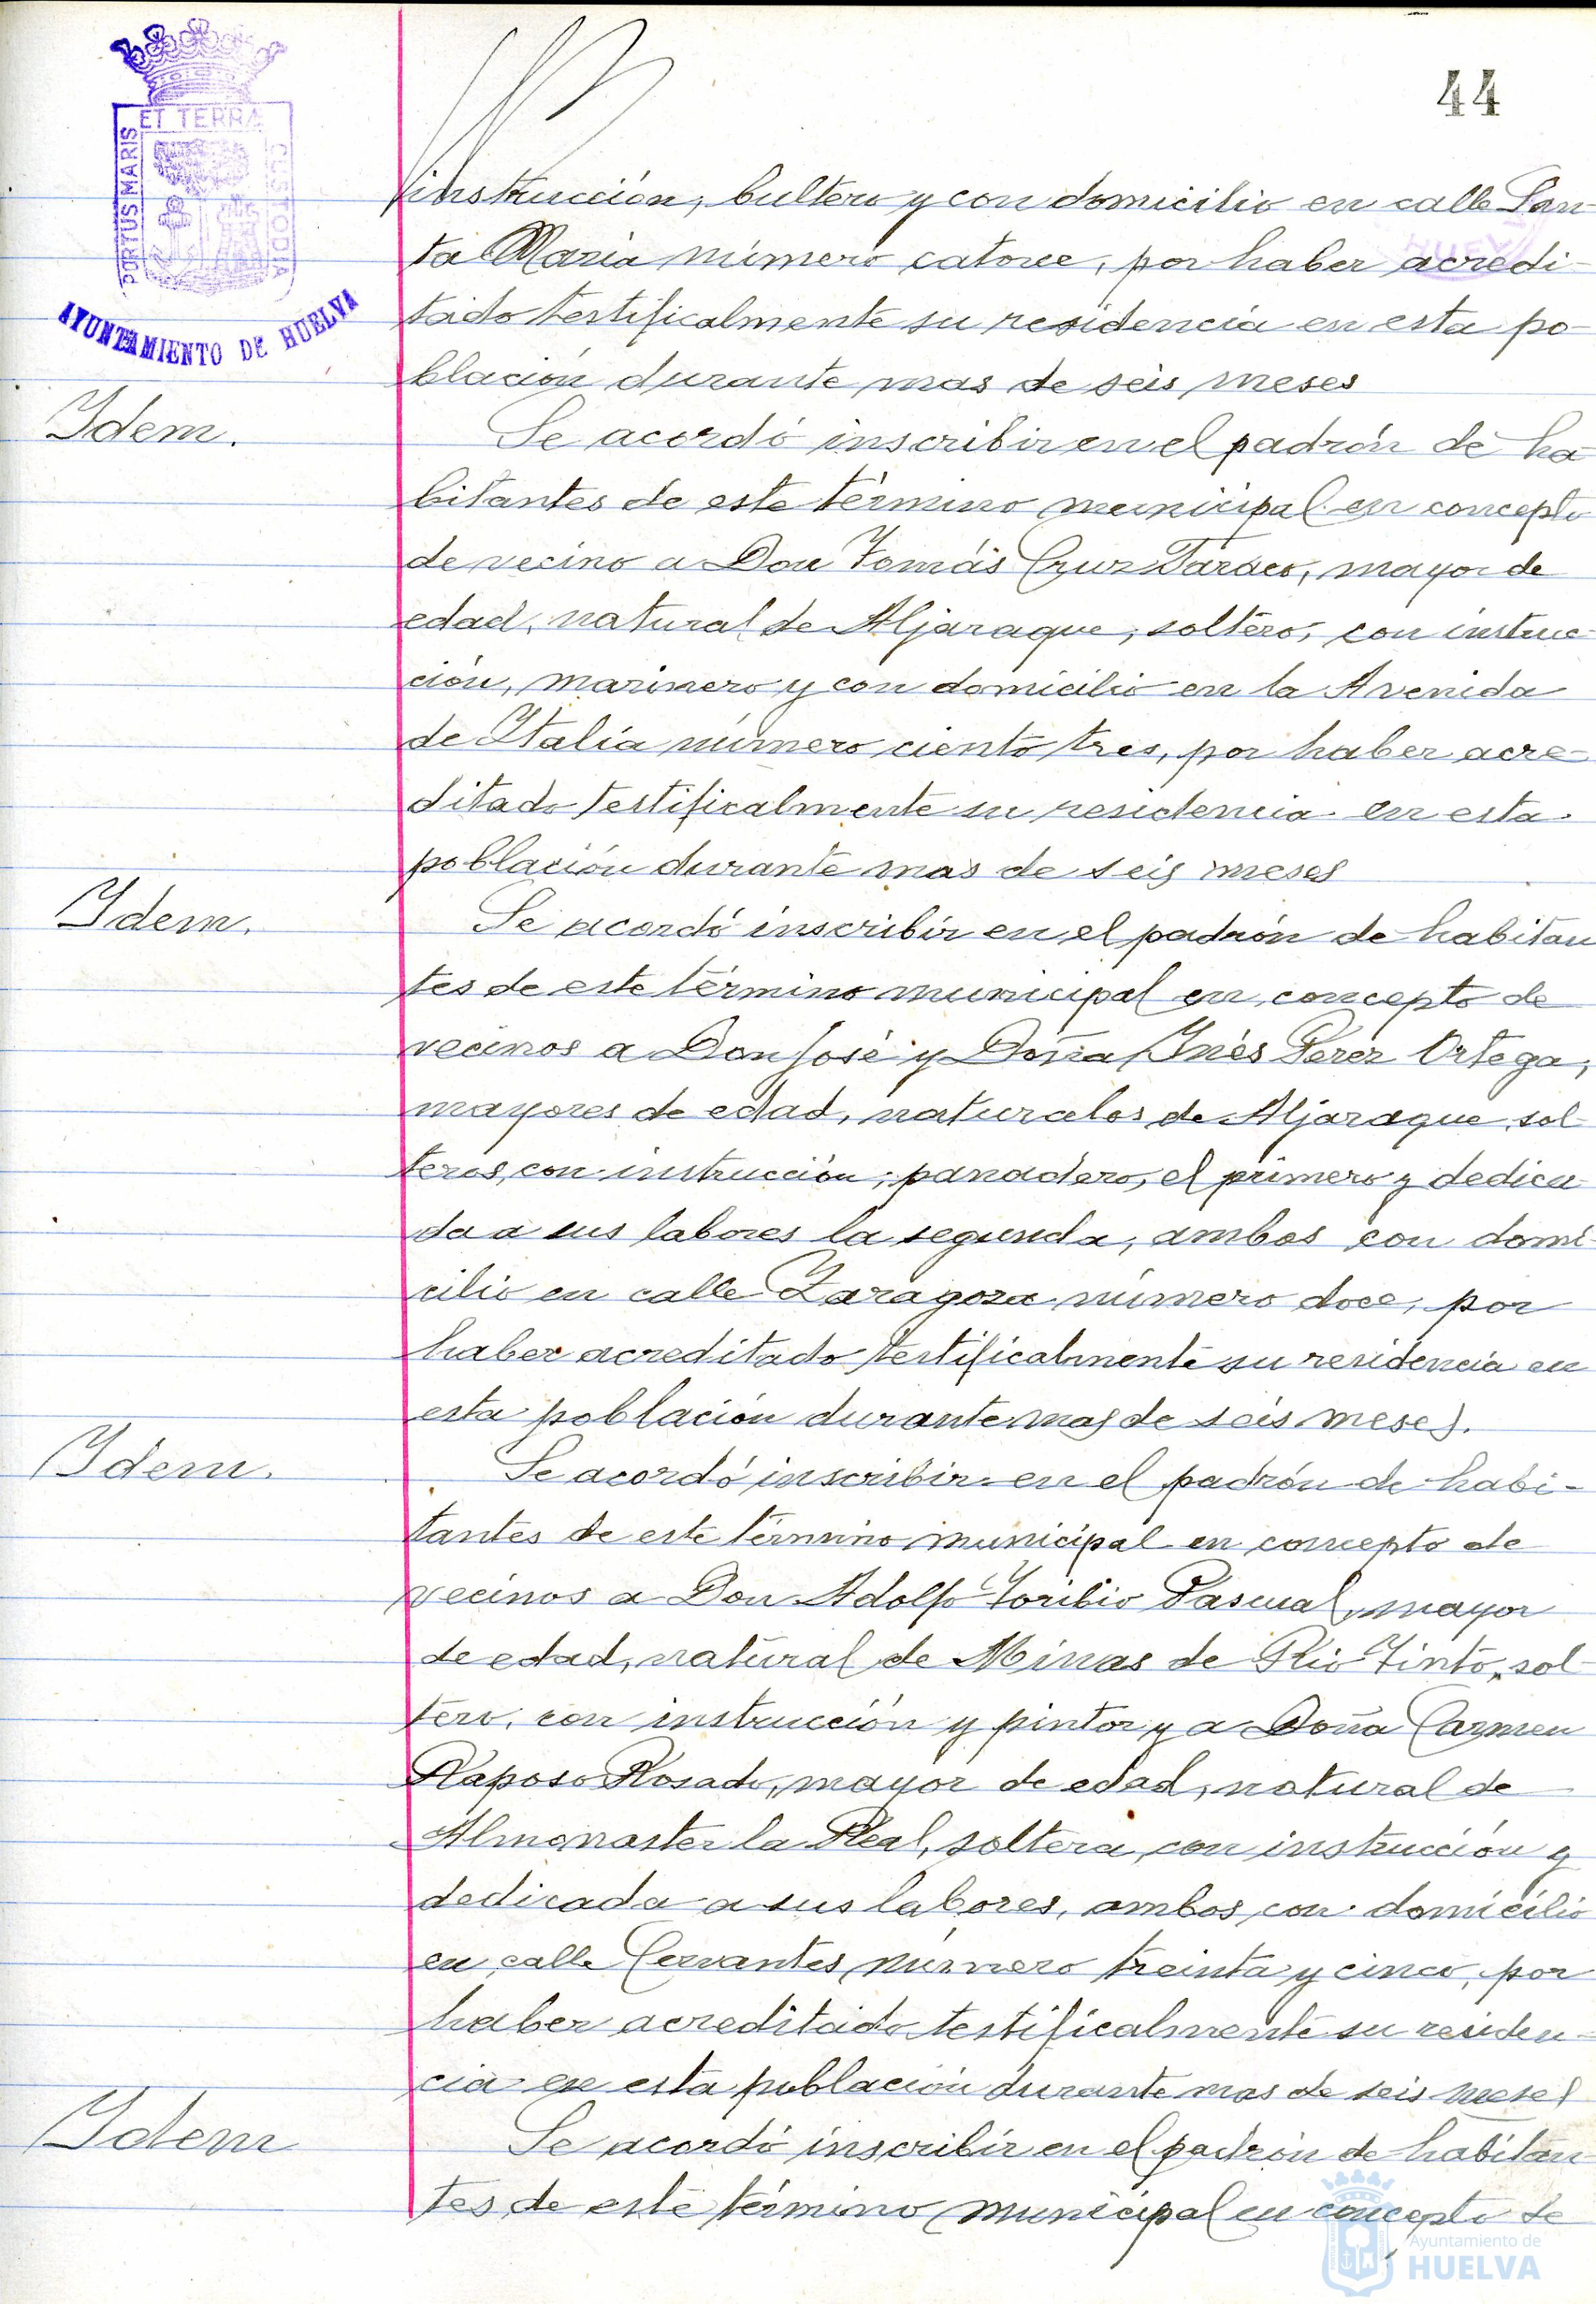 44
PORTUS MARIS
ET TERRA
CUSTODIA
AYUNTAMIENTO DE HUELVA
instrucción, bultero y con domicilio en calle San-
ta Maria número catorce, por haber acredi-
tado testificalmente su residencia en esta po-
blación durante mas de seis meses
Idem.
Se acordó inscribir en el padrón de ha-
bitantes de este término municipal en concepto
de vecino a Don Tomás Cruz mayor de
edad, natural de Aljaraque, soltero, con instruc-
ción, marinero y con domicilio en la Avenida
de Italia número ciento tres, por haber acre-
ditado testificalmente su residencia en esta
población durante mas de seis meses
Idem.
Se acordó inscribir en el padrón de habitan
tes de este término municipal en concepto de
vecinos a Don José y Doña Inés Perez Ortega,
mayores de edad, naturales de Aljaraque, sol-
teros, con instrucción, panadero, el primero y dedica-
da a sus labores la segunda, ambos con domi-
cilio en calle Zaragoza número doce, por
haber acreditado testificalmente su residencia en
esta población durante mas de seis meses.
Idem.
Se acordó inscribir en el padrón de habi-
tantes de este término municipal en concepto de
vecinos a Don Adolfo Toribio Pascual, mayor
de edad, natural de Minas de Rio Tinto, sol-
tero, con instrucción y pintor, y a Doña Carmen
Raposo Rosado, mayor de edad, natural de
Almonaster la Real, soltera, con instrucción y
dedicada a sus labores, ambos con domicilio
en calle Cervantes número treinta y cinco, por
haber acreditado testificalmente su residen-
cia en esta población durante mas de seis meses
Idem
Se acordó inscribir en el padrón de habitan
tes de este término municipal en concepto de
Ayuntamiento de
HUELVA